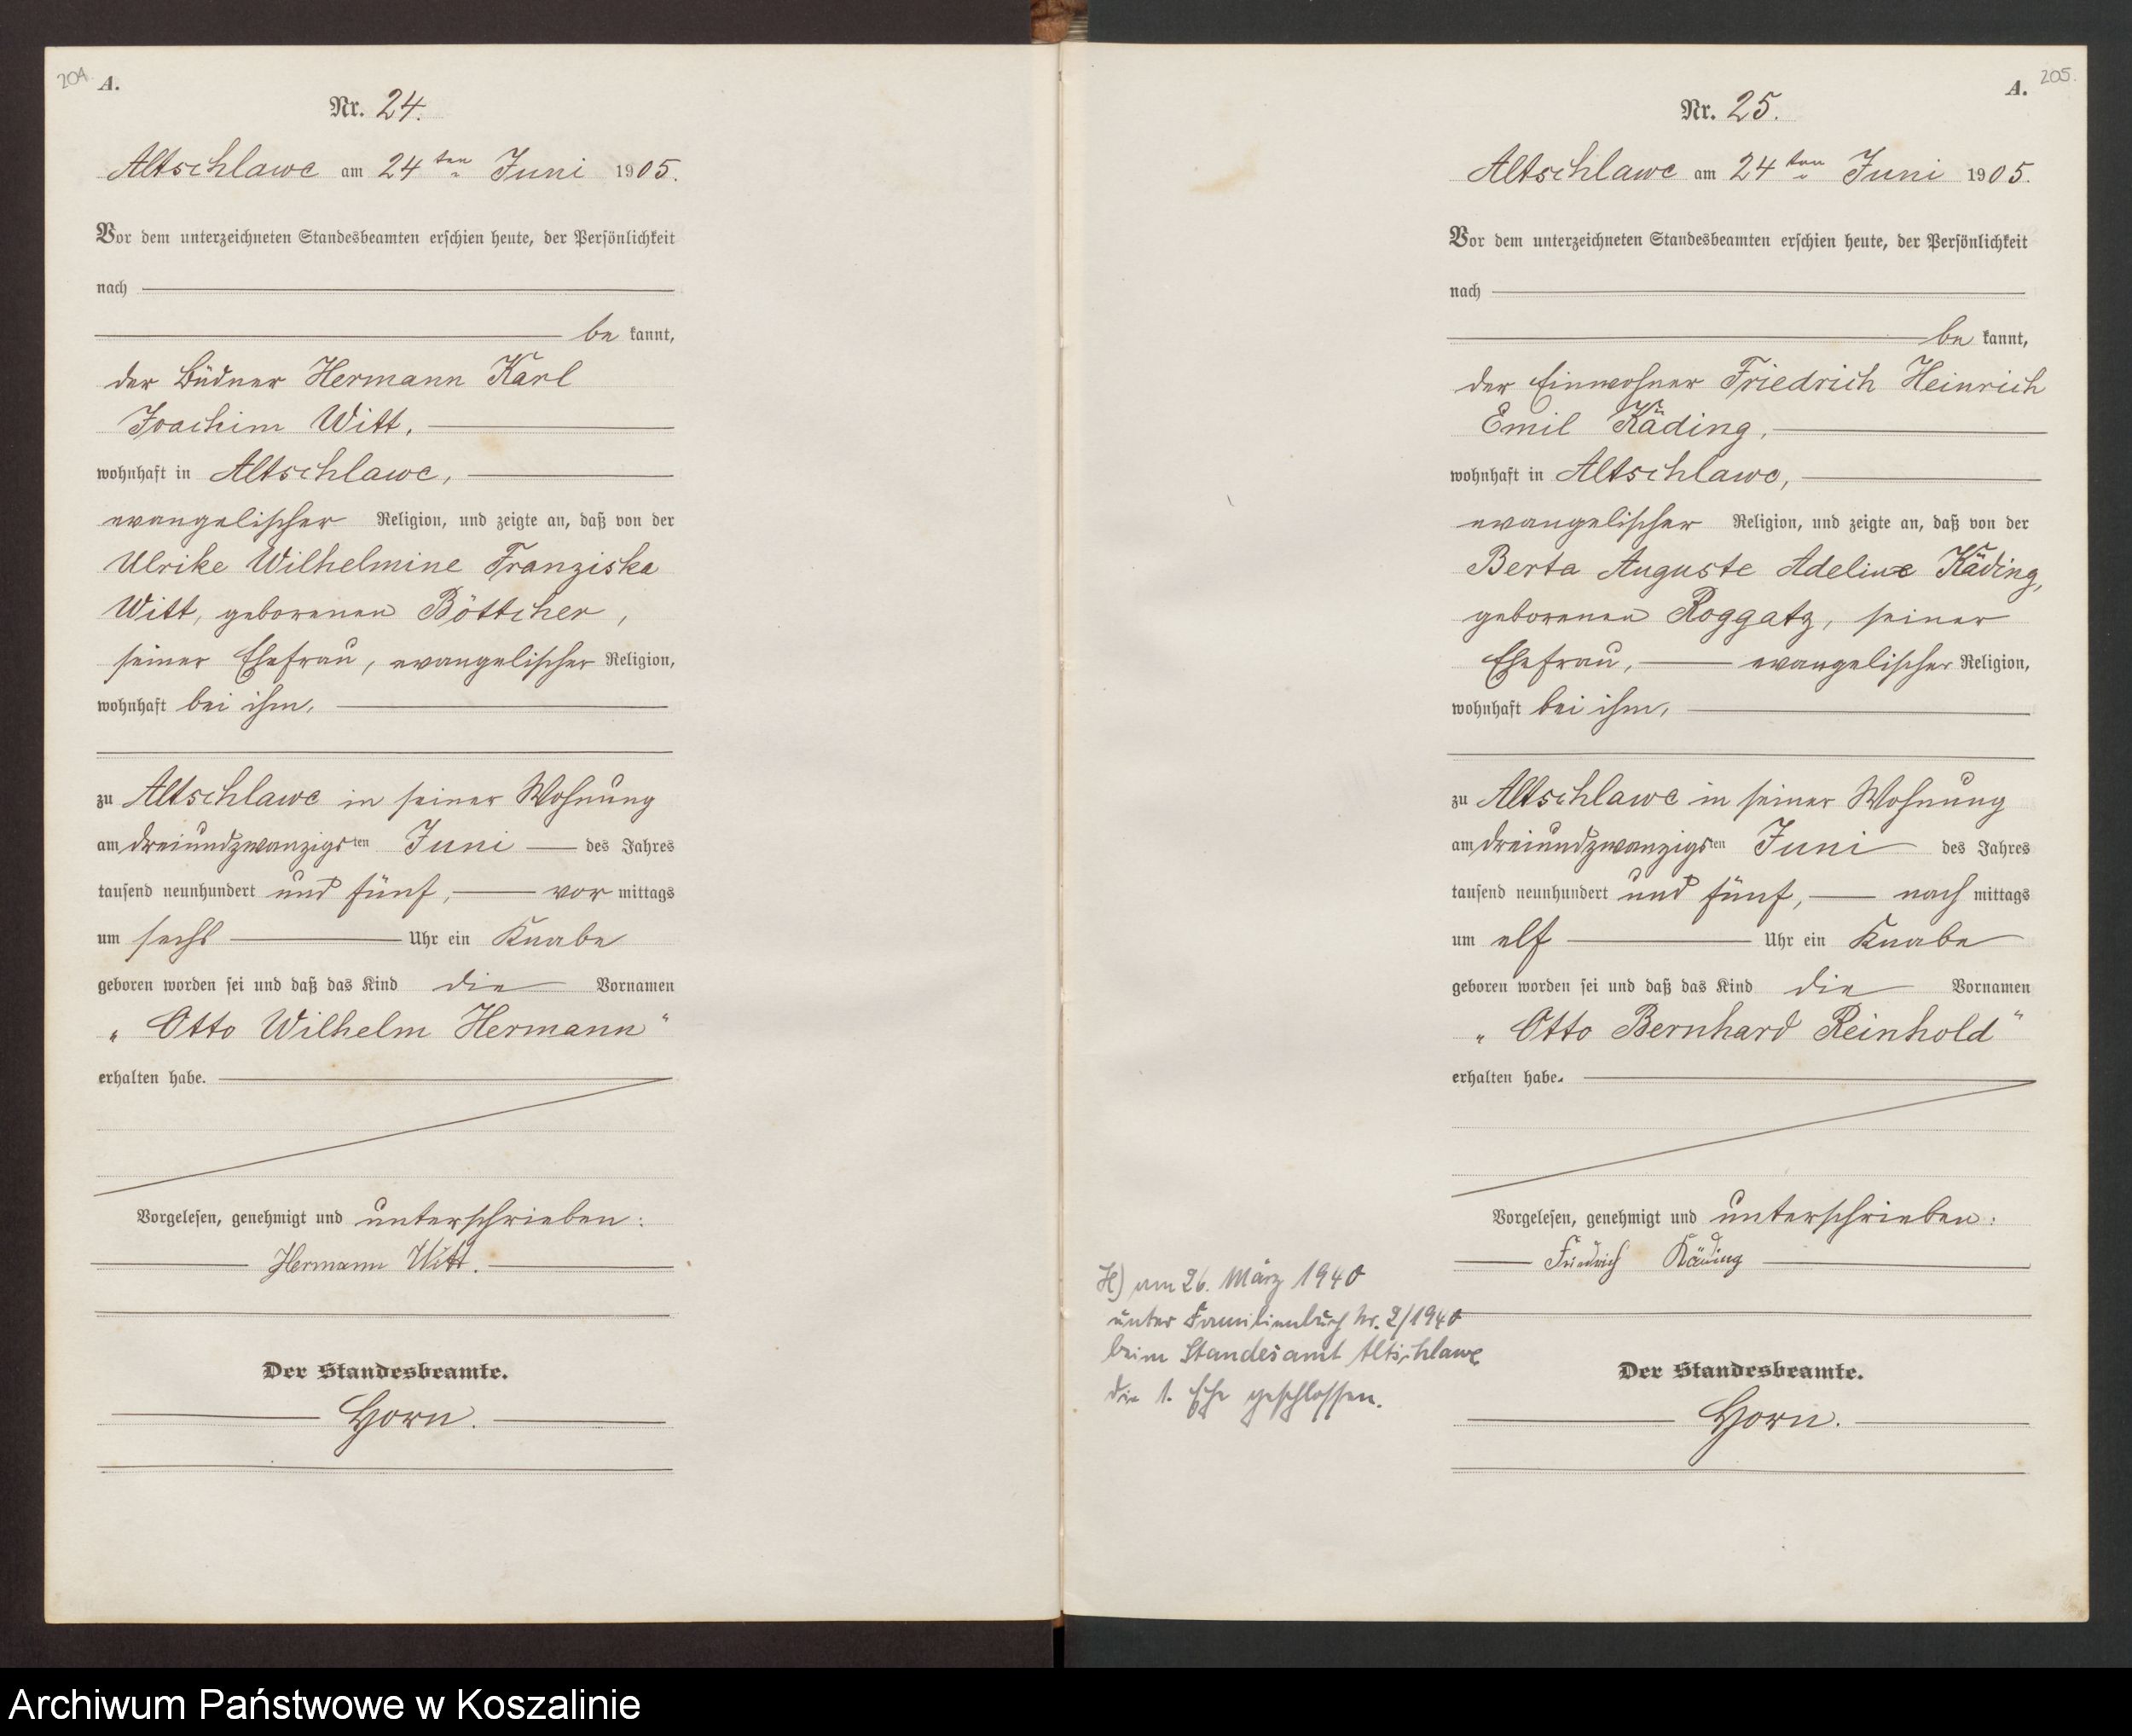 204.
A.
Nr. 24.
Altschlawe am 24ten Juni 1905.
Vor dem unterzeichneten Standesbeamten erschien heute, der Persönlichkeit
nach
be kannt,
der Büdner Hermann Karl
Joachim Witt,
wohnhaft in Altschlawe,
evangelischer Religion, und zeigte an, daß von der
Ulrike Wilhelmine Franziska
Witt, geborenen Böttcher,
seiner Ehefrau, evangelischer Religion,
wohnhaft bei ihm,
zu Altschlawe in seiner Wohnung
am dreiundzwanzigsten Juni des Jahres
tausend neunhundert und fünf, vor mittags
um sechs Uhr ein Knabe
geboren worden sei und daß das Kind die Vornamen
„Otto Wilhelm Hermann“
erhalten habe.
Vorgelesen, genehmigt und unterschrieben:
Hermann Witt.
Der Standesbeamte.
Horn.
205.
A.
Nr. 25.
Altschlawe am 24ten Juni 1905.
Vor dem unterzeichneten Standesbeamten erschien heute, der Persönlichkeit
nach
be kannt,
der Einwohner Friedrich Heinrich
Emil Käding,
wohnhaft in Altschlawe,
evangelischer Religion, und zeigte an, daß von der
Berta Auguste Adeline Käding,
geborenen Roggatz, seiner
Ehefrau, evangelischer Religion,
wohnhaft bei ihm,
zu Altschlawe in seiner Wohnung
am dreiundzwanzigsten Juni des Jahres
tausend neunhundert und fünf, nach mittags
um elf Uhr ein Knabe
geboren worden sei und daß das Kind die Vornamen
„Otto Bernhard Reinhold“
erhalten habe.
Vorgelesen, genehmigt und unterschrieben:
Friedrich Käding
Der Standesbeamte.
Horn.
H) am 26. März 1940
unter Familienbuch Nr. 2/1940
beim Standesamt Altschlawe
die 1. Ehe geschlossen.
Archiwum Państwowe w Koszalinie